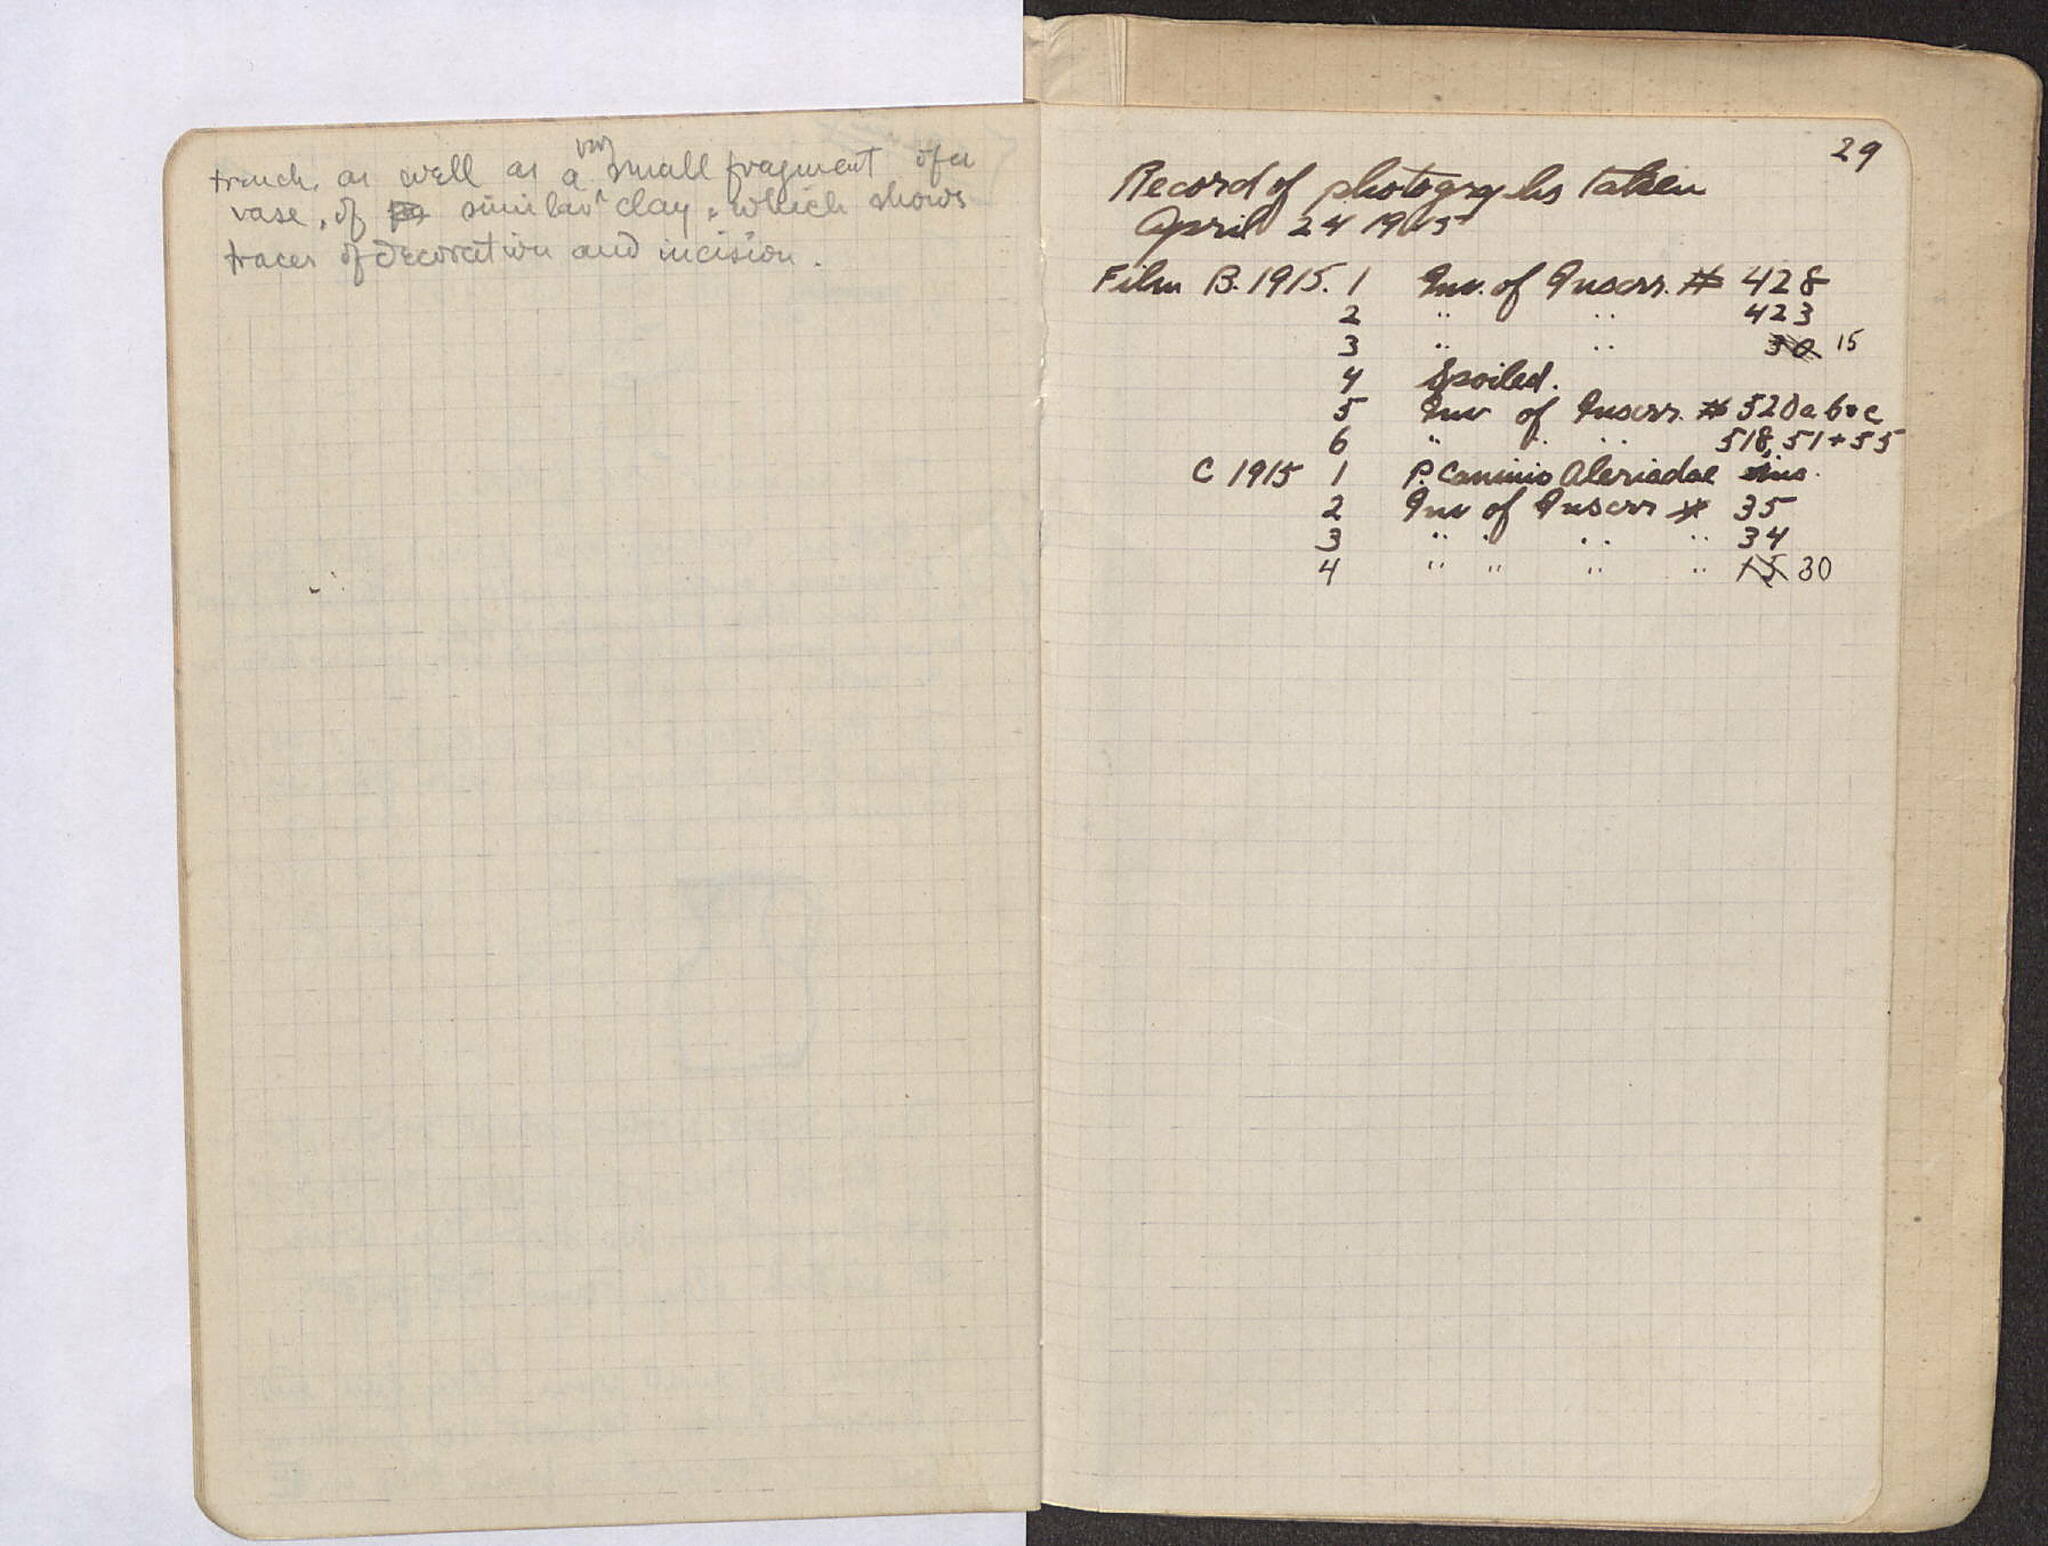 trench, as well as a very small fragment of a
vase, of similar clay, which shows
traces of decoration and incision.
29
Record of photographs taken
April 24 1915
Film B. 1915. 1 Inv. of Inscr. # 428
2 " " 423
3 " " 30 15
4 Spoiled.
5 Inv of Inscr. # 520a b & c
6 " " " 518, 51 + 55
C 1915 1 P. Caninio Aleriadae
2 Inv of Inscr # 35
3 " " " " 34
4 " " " " 15 30